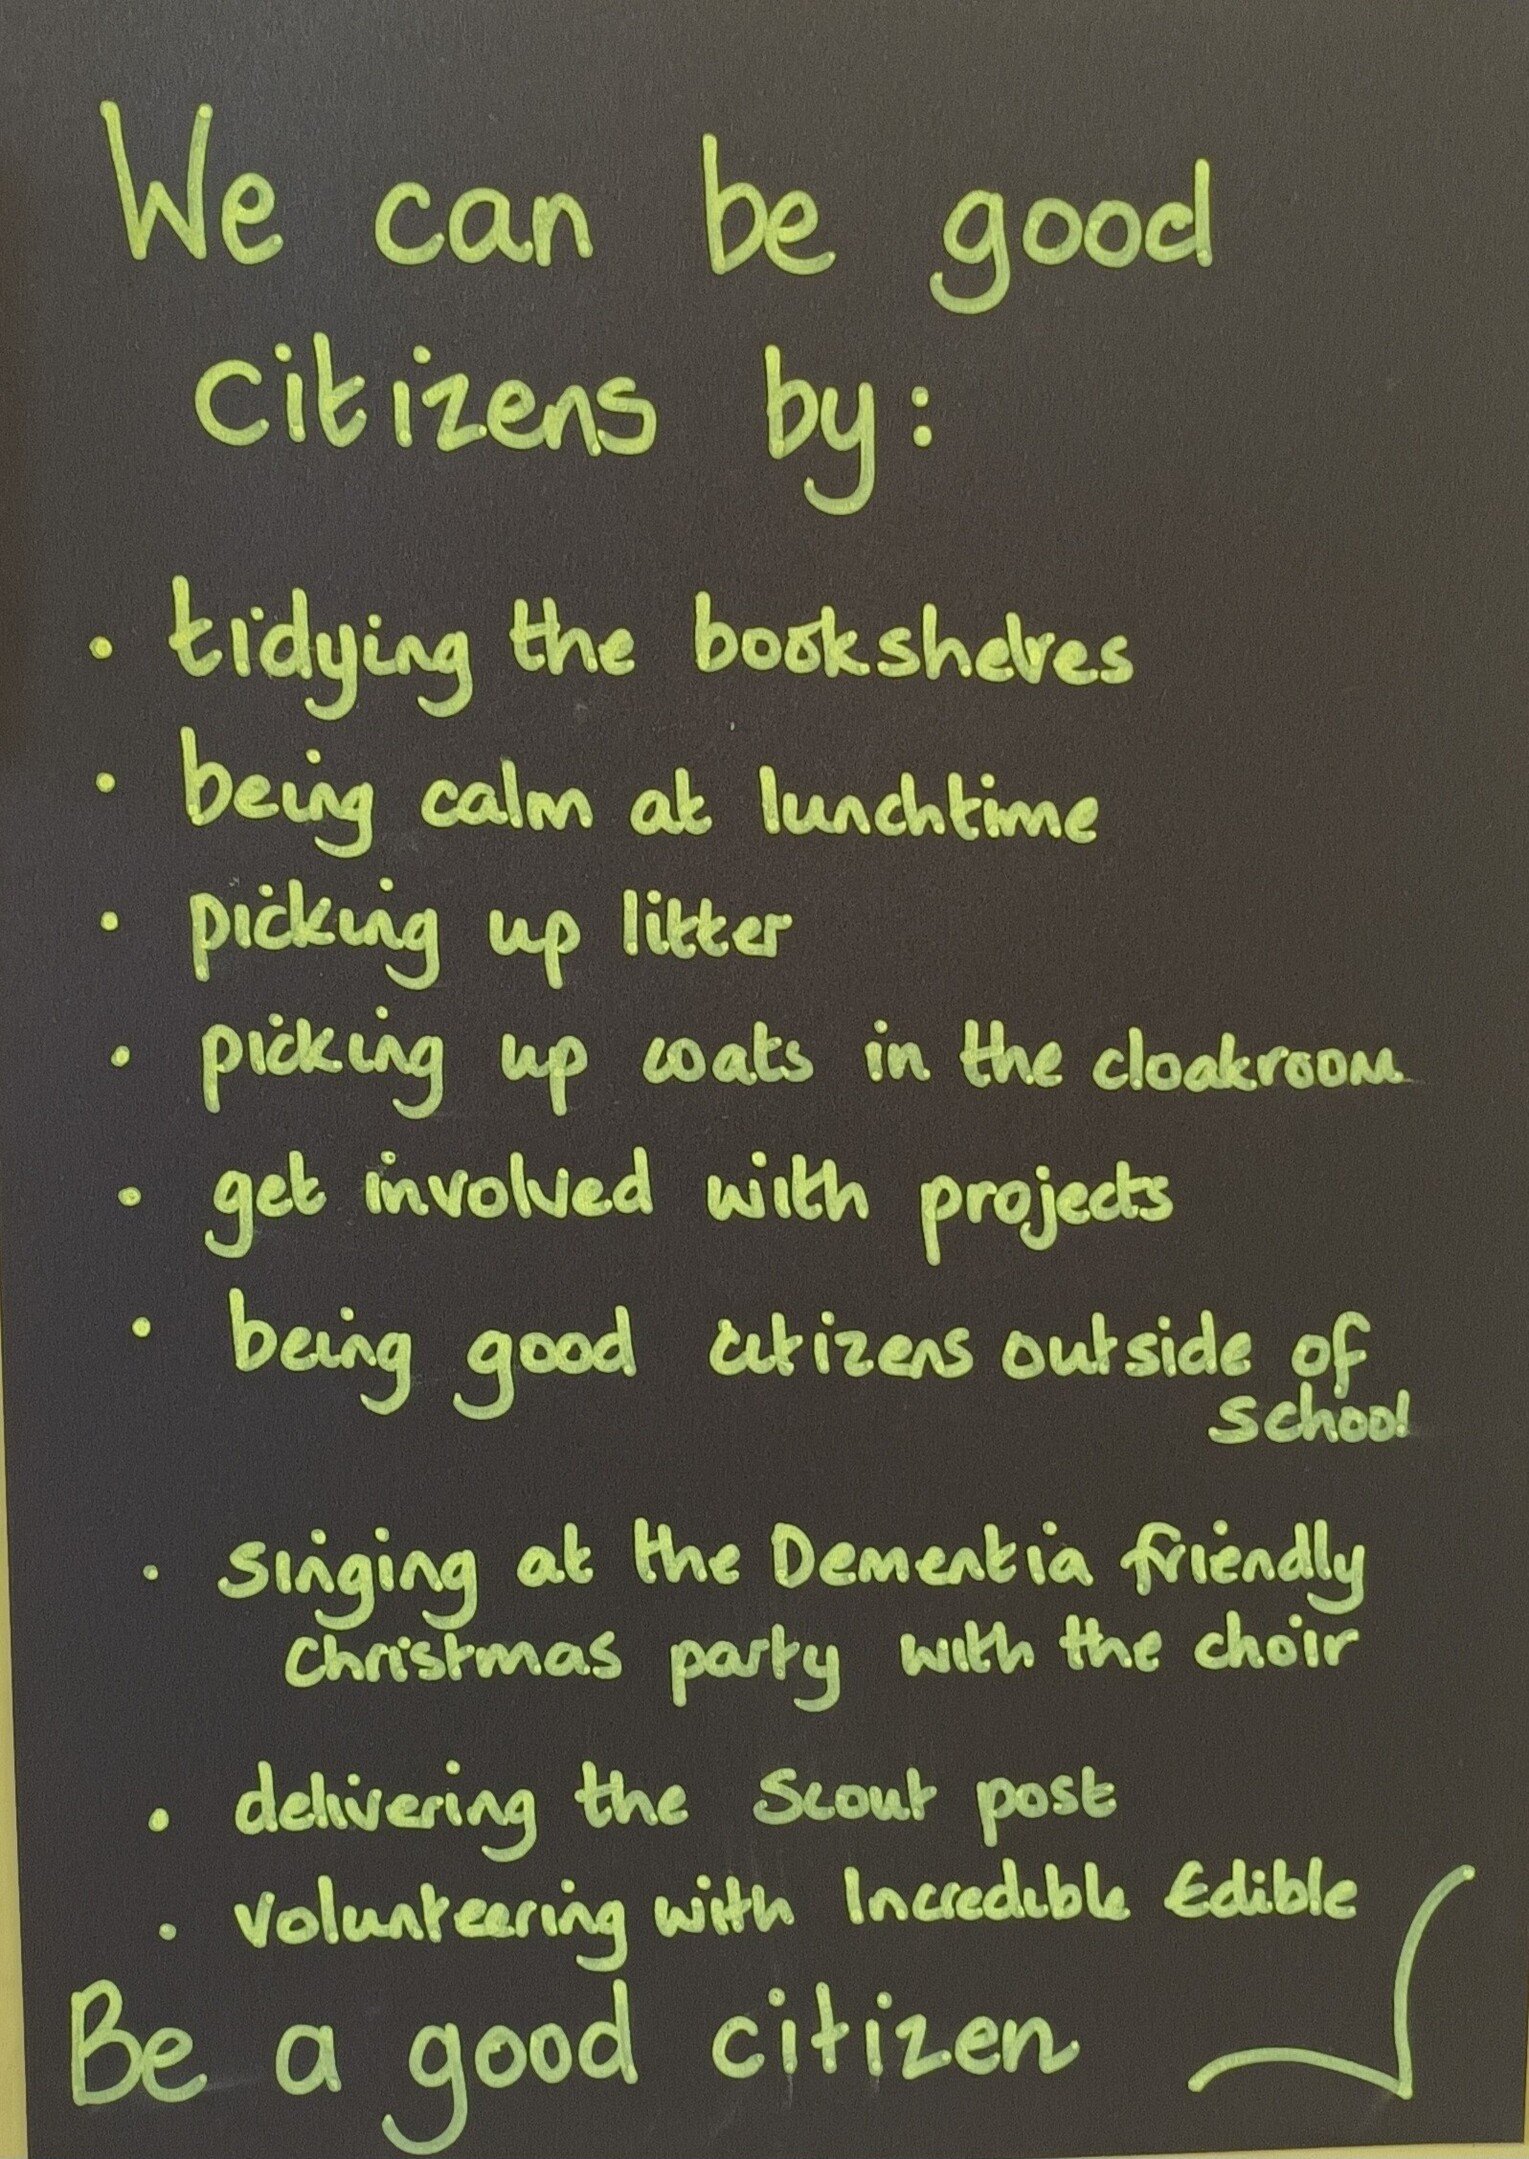 We can be good
citizens by:
• tidying the bookshelves
• being calm at lunchtime
• picking up litter
• picking up coats in the cloakroom
• get involved with projects
• being good citizens outside of
school
• singing at the Dementia friendly
Christmas party with the choir
• delivering the Scout post
• Volunteering with Incredible Edible
Be a good citizen